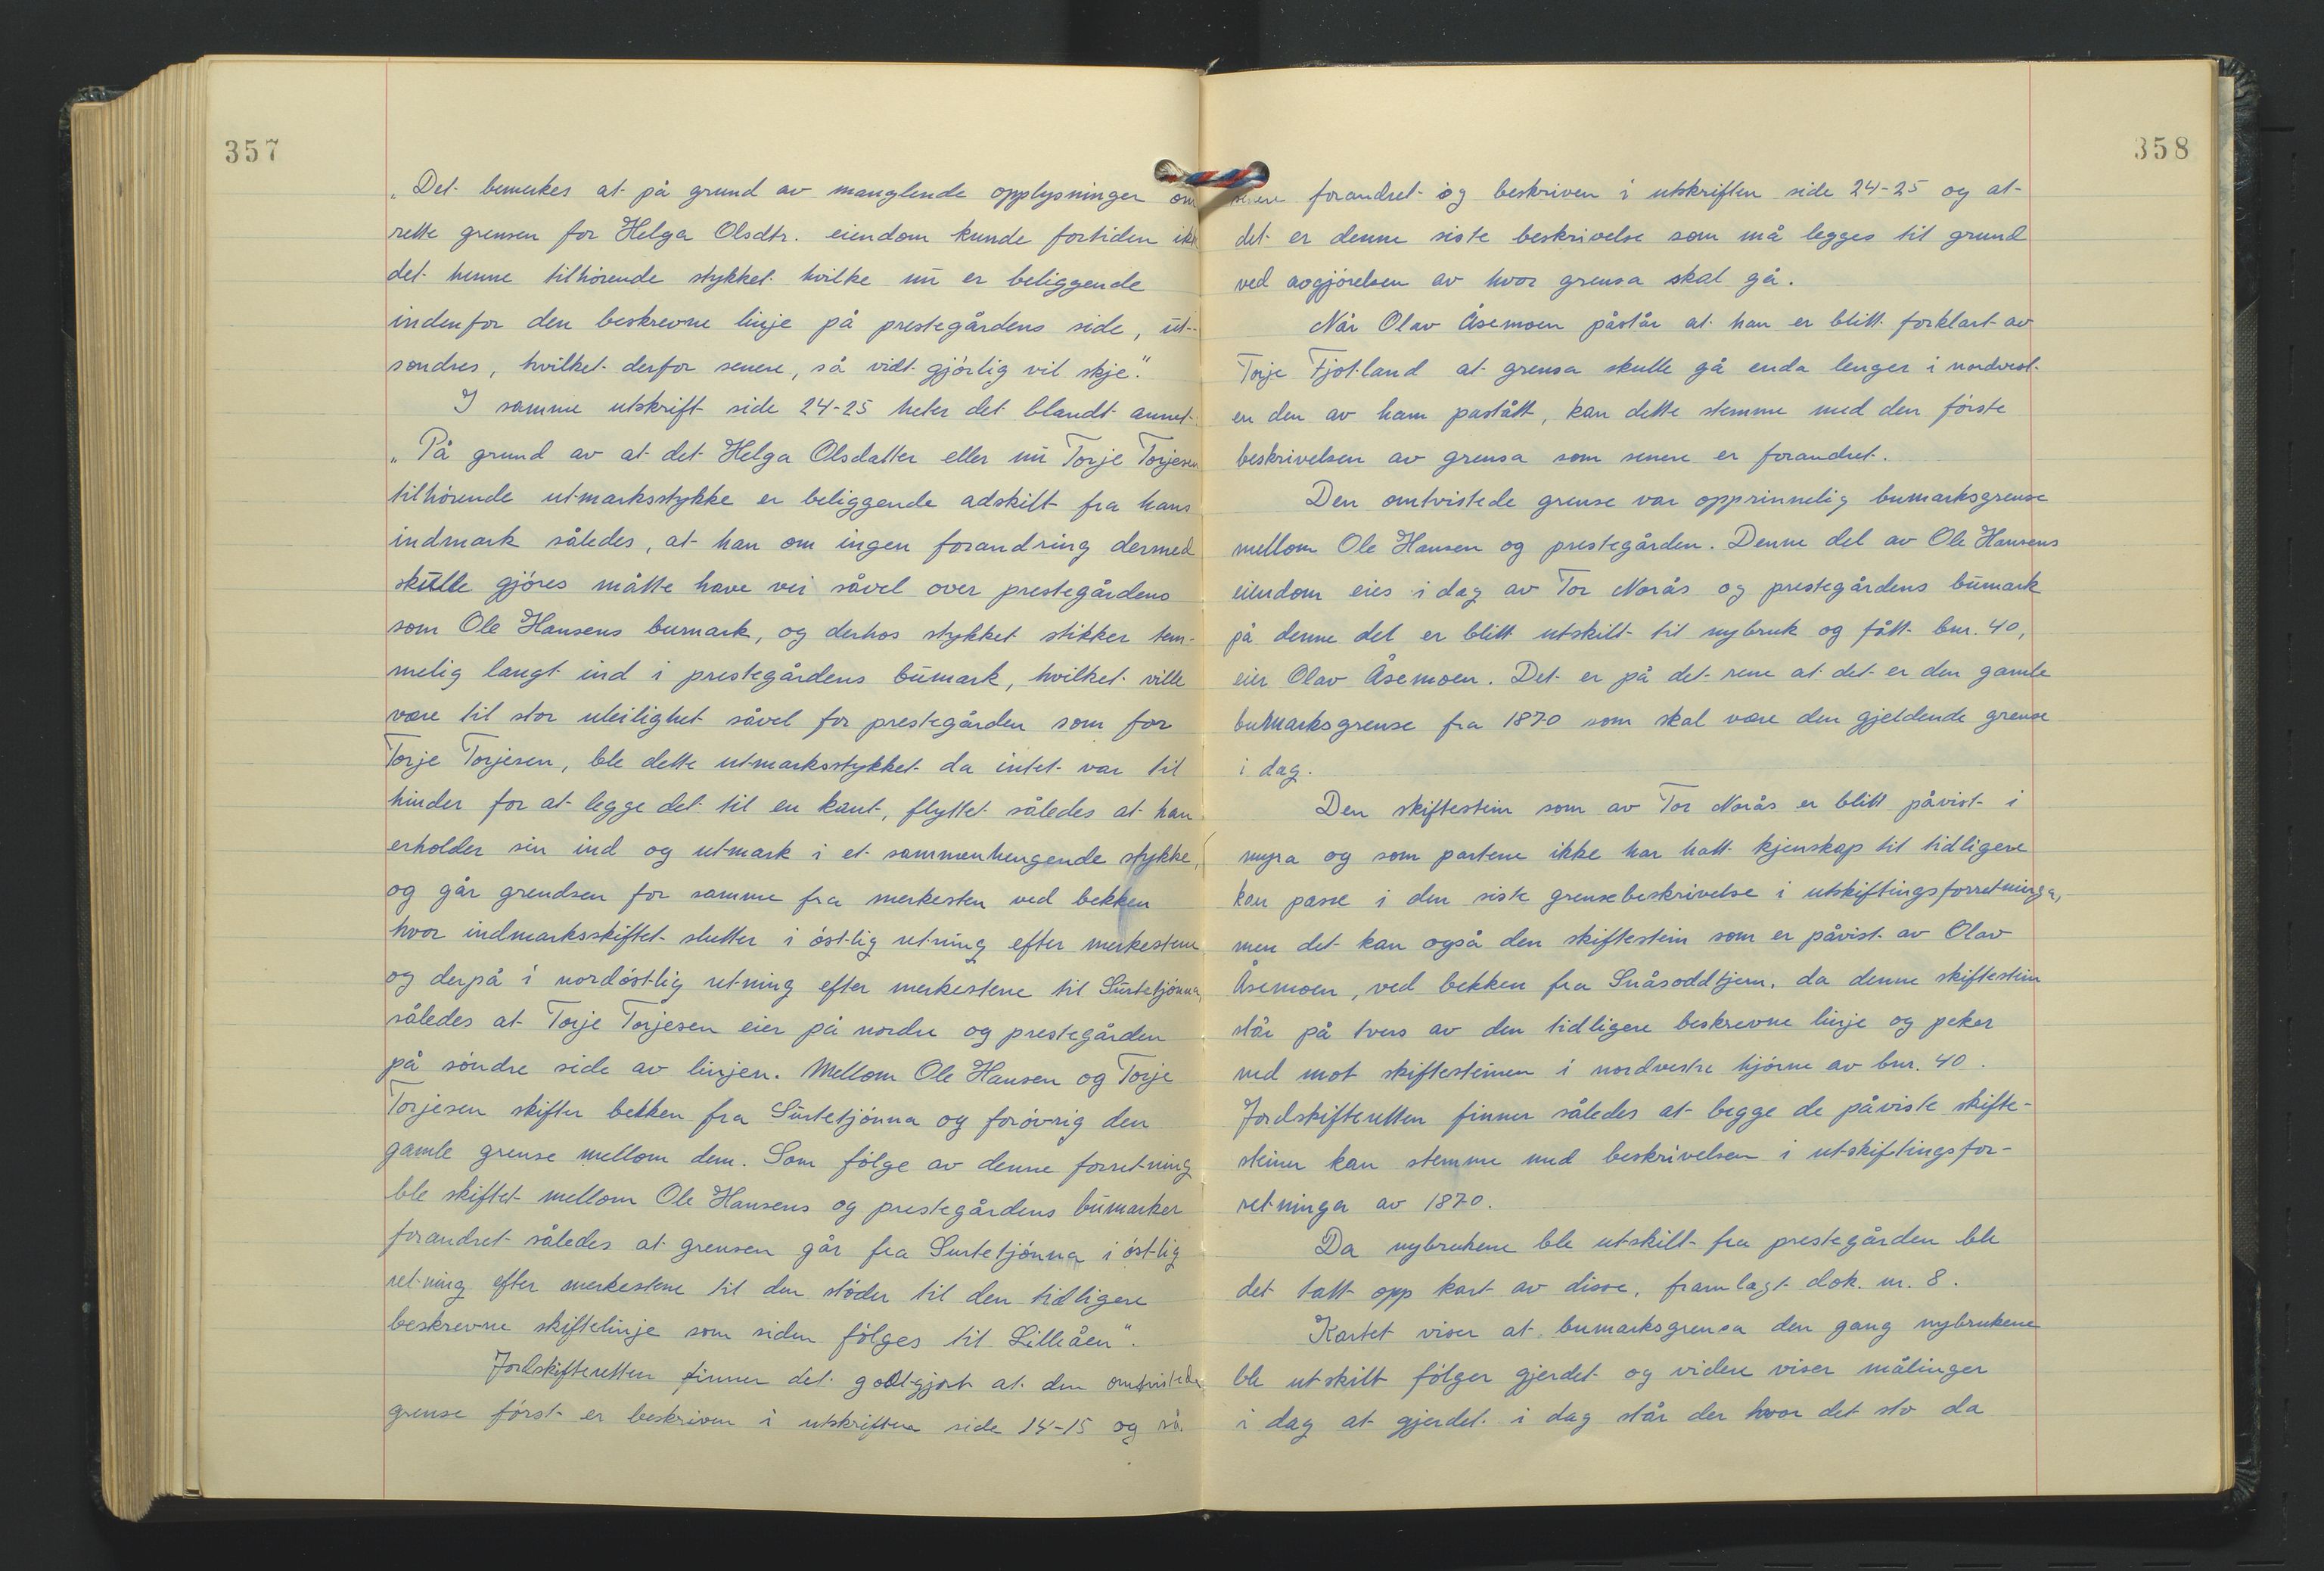 357
„Det bemerkes at på grund av manglende opplysninger om
rette grensen for Helga Olsdtr. eiendom kunde fortiden ikke
det henne tilhörende stykket hvilke nu er beliggende
indenfor den beskrevne linje på prestegårdens side, ut-
söndres, hvilket derfor senere, så vidt gjörlig vil skje."
I samme utskrift side 24-25 heter det blandt annet
„På grund av at det Helga Olsdatter eller nu Torje Torjesen
tilhörende utmarksstykke er beliggende adskilt fra hans
indmark således, at han om ingen forandring dermed
skulle gjöres måtte have vei såvel over prestegårdens
som Ole Hansens bumark, og derhos stykket stikker tem-
melig langt ind i prestegårdens bumark, hvilket ville
være til stor uleilighet såvel for prestegården som for
Torje Torjesen, ble dette utmarksstykket da intet var til
hinder for at legge det til en kant, flyttet således at han
erholder sin ind og utmark i et sammenhengende stykke,
og går grendsen for samme fra merkesten ved bekken
hvor indmarksskiftet slutter i östlig retning efter merkestene
og derpå i nordöstlig retning efter merkestene til Surtetjönna,
således at Torje Torjesen eier på nordre og prestegården
på söndre side av linjen. Mellom Ole Hansen og Torje
Torjesen skifter bekken fra Surtetjönna og forövrig den
gamle grense mellom dem. Som fölge av denne forretning
ble skiftet mellom Ole Hansens og prestegårdens bumarker
forandret således at grensen går fra Surtetjönna i östlig
retning efter merkestene til den stöder til den tidligere
beskrevne skiftelinje som siden fölges til Lilleåen".
Jordskifteretten finner det godtgjort at den omtvistede
grense först er beskriven i utskriften side 14-15 og så
358
senere forandret og beskriven i utskriften side 24-25 og at
det er denne siste beskrivelse som må legges til grund
ved avgjörelsen av hvor grensa skal gå.
Når Olav Åsemoen påstår at han er blitt forklart av
Torje Fjotland at grensa skulle gå enda lenger i nordvest
en den av ham pastått, kan dette stemme med den förste
beskrivelsen av grensa som senere er forandret.
Den omtvistede grense var opprinnelig bumarksgrense
mellom Ole Hansen og prestegården. Denne del av Ole Hansens
eiendom eies i dag av Tor Norås og prestegårdens bumark
på denne del er blitt utskilt til nybruk og fått bnr. 40,
eier Olav Åsemoen. Det er på det rene at det er den gamle
bumarksgrense fra 1870 som skal være den gjeldende grense
i dag.
Den skiftestein som av Tor Norås er blitt påvist i
myra og som partene ikke har hatt kjenskap til tidligere
kan passe i den siste grensebeskrivelse i utskiftingsforretninga,
men det kan også den skiftestein som er påvist av Olav
Åsemoen, ved bekken fra Snåsoddtjern, da denne skiftestein
står på tvers av den tidligere beskrevne linje og peker
ned mot skiftesteinen i nordvestre hjörne av bnr. 40.
Jordskifteretten finner således at begge de påviste skifte-
steiner kan stemme med beskrivelsen i utskiftingsfor-
retninga av 1870.
Da nybrukene ble utskilt fra prestegården ble
det tatt opp kart av disse, framlagt dok. nr. 8.
Kartet viser at bumarksgrensa den gang nybrukene
ble utskilt fölger gjerdet og videre viser målinger
i dag at gjerdet i dag står der hvor det sto da